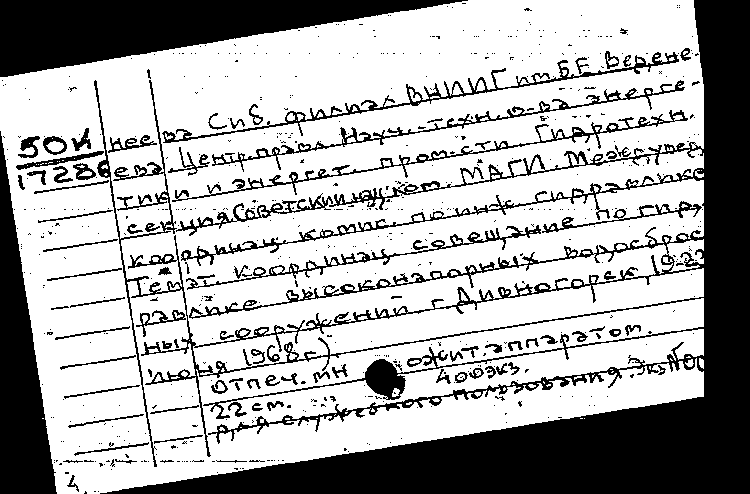 50К
17286
неева Сиб. филиал ВНИИГ им. Б.Е. Ведене-
ева. Центр. правл. Науч.-техн. о-ва энерге-
тики и энергет. пром-сти. Гидротехн.
секция. Советский ком. МАГИ. Междувед.
координац. комис. по инж. гидравлике
Темат. координац. совещание по гид-
равлике высоконапорных водосброс
ных сооружений г. Дивногорск, 19-23
июня 1968г.).
Отпеч. мн ожит. аппаратом.
22 см. 400экз.
Для служебного пользования. Экз №00
4